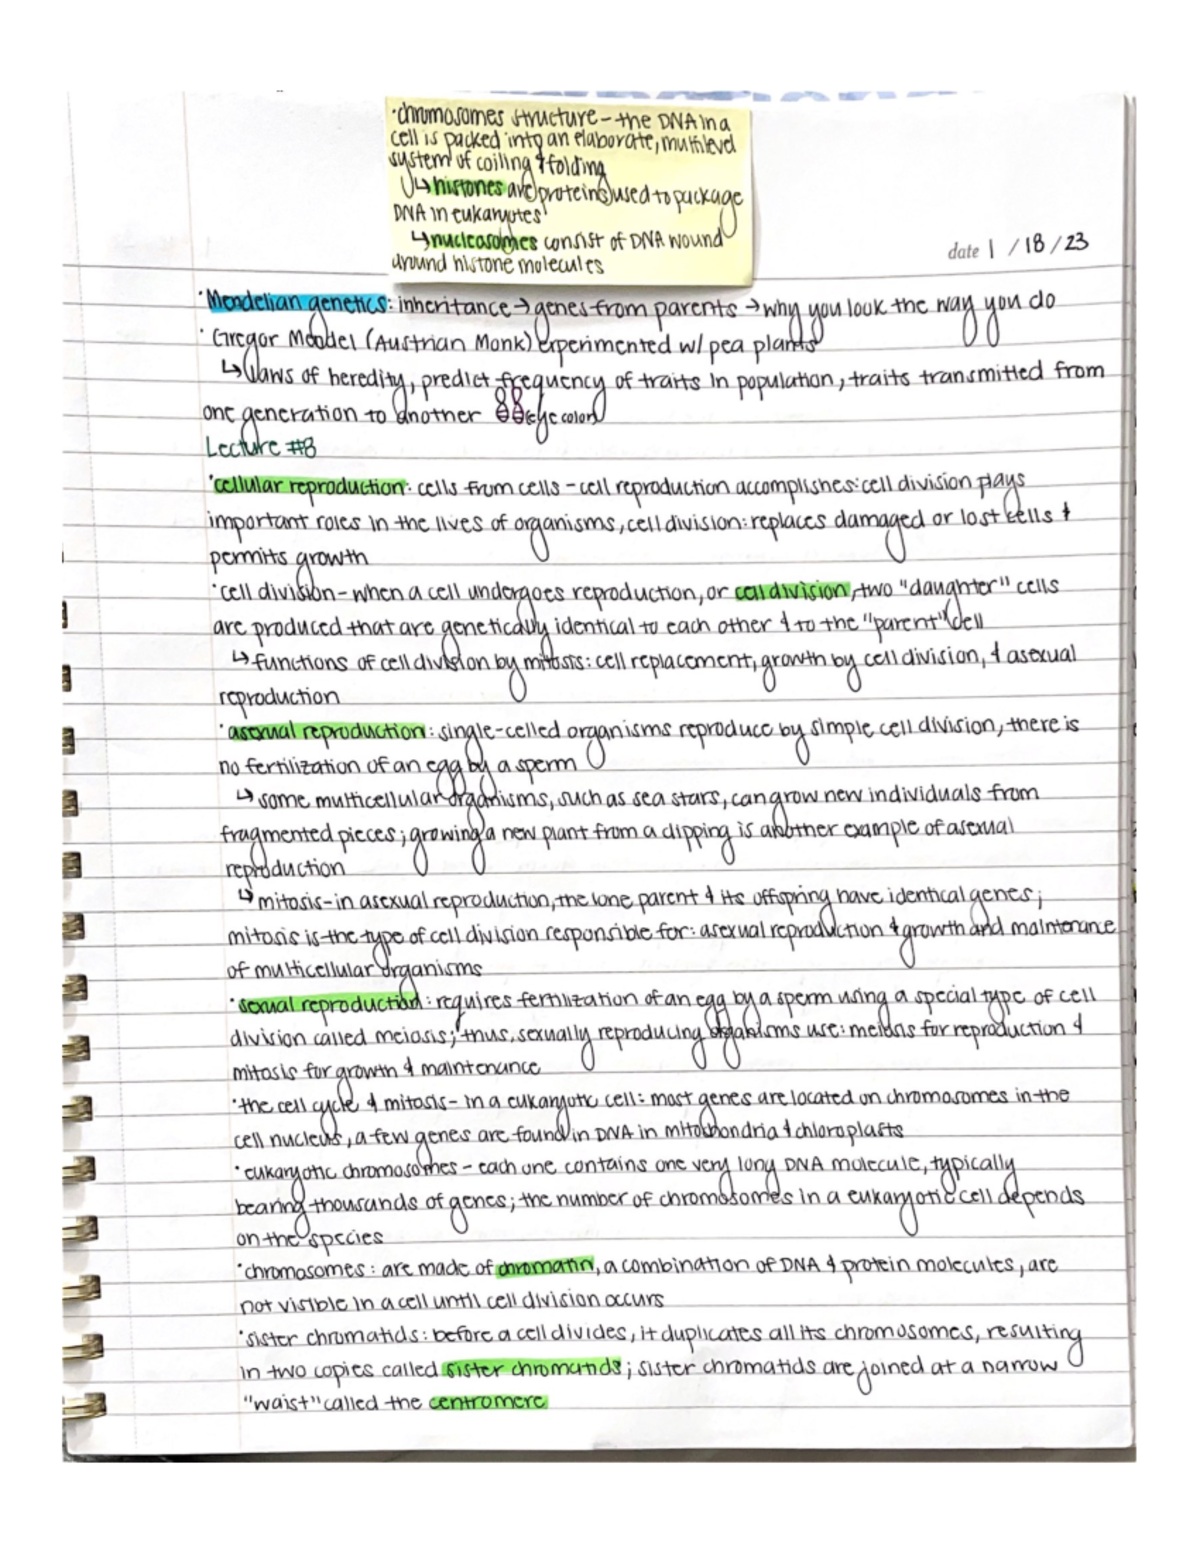 ·chromosomes structure - the DNA in a
cell is packed into an elaborate, multilevel
system of coiling & folding
↳ histones are proteins used to package
DNA in eukaryotes
↳ nucleosomes consist of DNA wound
around histone molecules
date 1 / 18 / 23
·Mendelian genetics: inheritance → genes from parents → why you look the way you do
· Gregor Mendel (Austrian Monk) experimented w/ pea plants
↳ laws of heredity, predict frequency of traits in population, traits transmitted from
one generation to another eye color
Lecture #8
·cellular reproduction: cells from cells - cell reproduction accomplishes: cell division plays
important roles in the lives of organisms, cell division: replaces damaged or lost cells &
permits growth
·cell division - when a cell undergoes reproduction, or cell division, two "daughter" cells
are produced that are genetically identical to each other & to the "parent" cell
↳ functions of cell division by mitosis: cell replacement, growth by cell division, & asexual
reproduction
·asexual reproduction: single-celled organisms reproduce by simple cell division, there is
no fertilization of an egg by a sperm
↳ some multicellular organisms, such as sea stars, can grow new individuals from
fragmented pieces; growing a new plant from a clipping is another example of asexual
reproduction
↳ mitosis - in asexual reproduction, the lone parent & its offspring have identical genes;
mitosis is the type of cell division responsible for: asexual reproduction & growth and maintenance
of multicellular organisms
·sexual reproduction: requires fertilization of an egg by a sperm using a special type of cell
division called meiosis; thus, sexually reproducing organisms use: meiosis for reproduction &
mitosis for growth & maintenance
·the cell cycle & mitosis - in a eukaryotic cell: most genes are located on chromosomes in the
cell nucleus, a few genes are found in DNA in mitochondria & chloroplasts
·eukaryotic chromosomes - each one contains one very long DNA molecule, typically
bearing thousands of genes; the number of chromosomes in a eukaryotic cell depends
on the species
·chromosomes: are made of chromatin, a combination of DNA & protein molecules, are
not visible in a cell until cell division occurs
·sister chromatids: before a cell divides, it duplicates all its chromosomes, resulting
in two copies called sister chromatids; sister chromatids are joined at a narrow
"waist" called the centromere